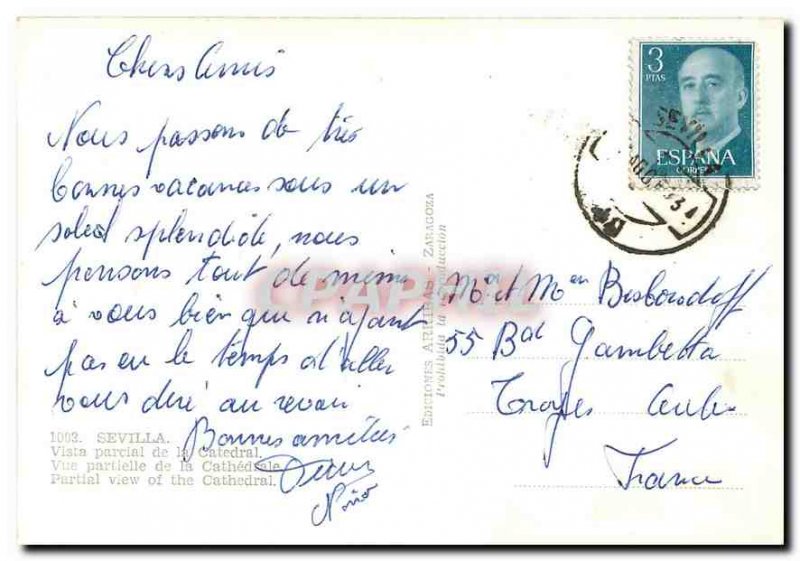 Chers Amis
Nous passons de très
bonnes vacances sous un
soleil splendide, nous
pensons tout de même
à vous bien que n'ayant
pas eu le temps d'aller
vous dire au revoir
Bonnes amitiés
1003. SEVILLA.
Vista parcial de la Catedral.
Vue partielle de la Cathédrale.
Partial view of the Cathedral.
EDICIONES ARRIBAS - ZARAGOZA
Prohibida la reproducción
3
PTAS
ESPAÑA
CORREOS
SEVILLA
Mr et Mme
55 Bd Gambetta
Troyes Aube
France